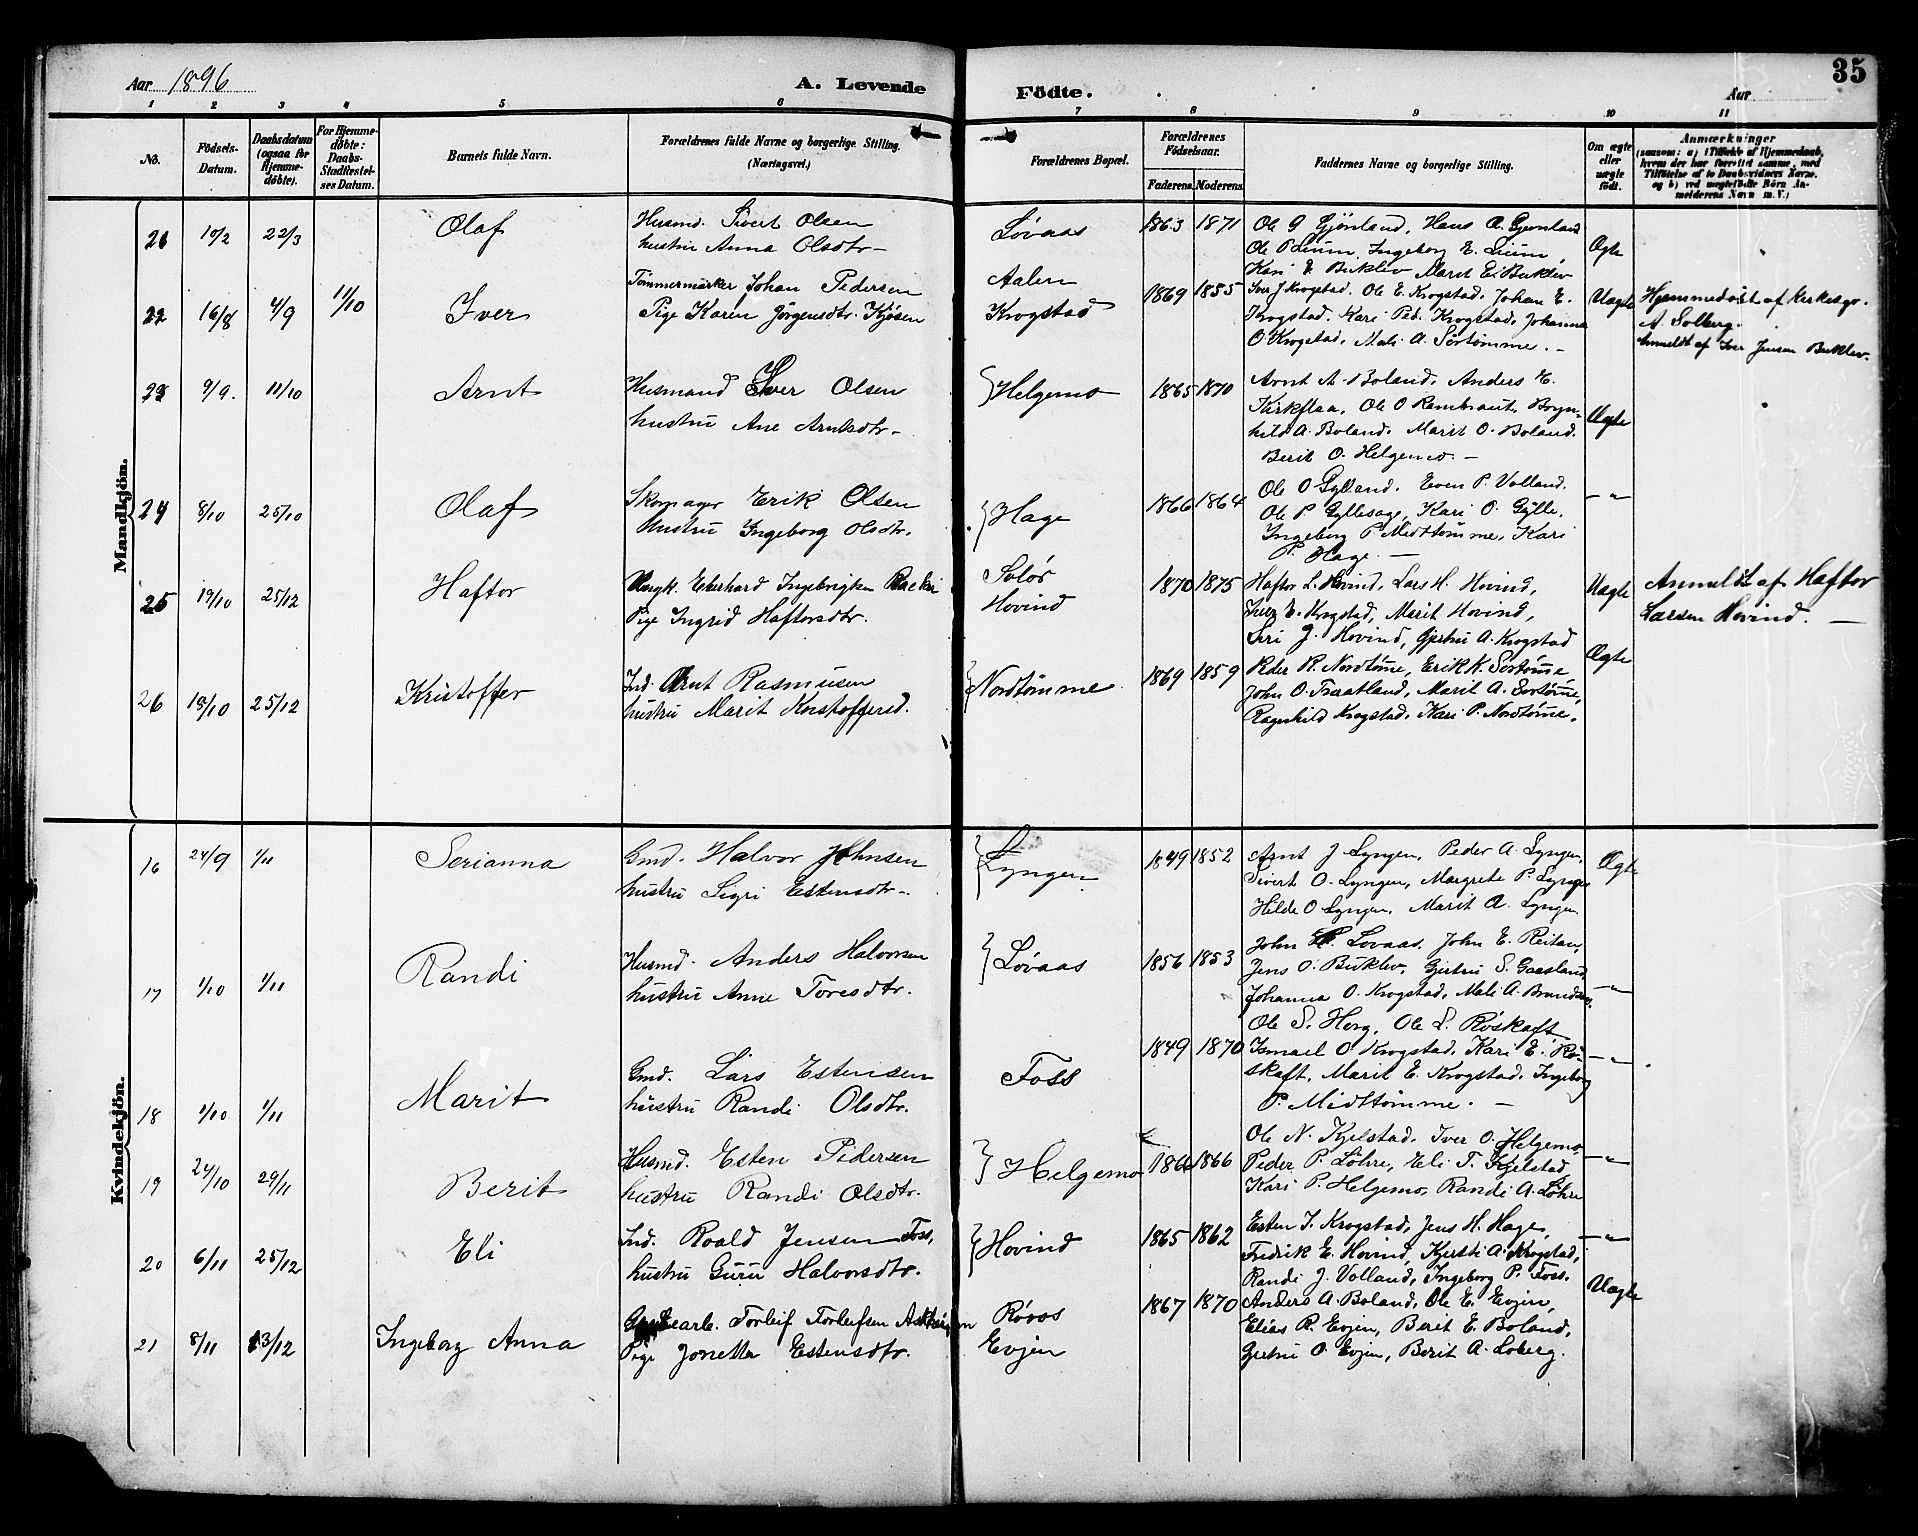 Aar 1896
A. Levende
Födte.
Aar
35
1 2 3 4 5 6 7 8 9 10 11
No.
Födsels-Datum.
Daabsdatum (ogsaa for Hjemme-döbte).
For Hjemme-döbte: Daabs-Stadfæstel-ses Datum.
Barnets fulde Navn.
Forældrenes fulde Navne og borgerlige Stilling. (Næringsvei.)
Forældrenes Bopæl.
Forældrenes Födselsaar.
Faderens. Moderens.
Faddernes Navne og borgerlige Stilling.
Om ægte eller uægte födt.
Anmærkninger
(saasom: a) i Tilfælde af Hjemmedaab,
hvem der har forrettet samme, med
Tilföielse af to Daabsvidners Navne,
og b) ved uægtefödte Börn An-
melderens Navn m. V.)
Mandkjön.
21 10/2 22/3 Olaf
Husmd. Sivert Olsen
hustru Anna Olsdtr-
Løvaas
1863 1871
Ole G Gjønland, Hans A. Gjønland
Ole P Lium, Ingeborg E. Lium,
Kari E Buklev Marit E. Buklev
Ægte
22 16/8 4/9 11/10 Iver
Tømmermærker Johan Pedersen
Pige Karen Jørgensdtr. Kjøsen
Aalen
Krogstad
1869 1855
Iver J Krogstad. Ole E. Krogstad, Johan E.
Krogstad. Kari Ped. Krogstad, Johanna
O Krogstad, Mali A. Sørtømme. -
Uægte
Hjemmedøbt af Kirkesgr.
A. Solberg.
Anmeldt af Iver Jensen Buklev.
23 9/9. 11/10 Arnt
Husmand Iver Olsen
hustru Ane Arntsdtr-
Helgemo
1865 1870
Arnt A. Boland, Anders E.
Kirkflaa, Ole O Rambraut, Bryn-
hild A. Boland. Marit O. Boland.
Berit O. Helgemo. -
Ægte
24 8/10 25/10 Olaf
Skomager Erik Olsen
Hustru Ingeborg Olsdtr.
Hage
1866 1864
Ole O Gylland. Even P. Volland.
Ole P. Gyllesage, Kari O. Gylle,
Ingeborg P Midttømme, Kari
P. Hage. -
-"-
25 19/10 25/12 Haftor
Ungk. Eberhard Ingebrigtsen
Pige Ingrid Haftorsdtr.
Solør
Hovind
1870 1875
Haftor L. Hovind, Lars H. Hovind,
E. Krogstad, Marit Hovind,
Siri J. Hovind, Gjertru A. Krogstad
Uægte
Anmeldt af Haftor
Larsen Hovind. -
26 18/10 25/12 Kristoffer
Ind. Arnt Rasmusen
hustru Marit Kristoffersd.
Nordtømme
1869 1859
Peder R. Nordtømme, Erik K. Sørtømme,
John O. Fraatland, Marit A. Sørtømme,
Ragnhild Krogstad. Kari P. Nordtømme.
Ægte
Kvindekjön.
16 24/9 1/11 Serianna
Gmd. Halvor Johnsen
hustru Sigri Estensdtr-
Lyngen
1849 1852
Arnt J Lyngen, Peder A. Lyngen,
Sivert O. Lyngen, Margrete P. Lyngen
Hilde O Lyngen, Marit A. Lyngen
Ægte
17 1/10 1/11 Randi
Husmd. Anders Halvorsen
hustru Anne Toresdtr.
Løvaas
1856 1853
John Løvaas. John E. Reitan,
Jens O. Buklev, Gjertru S. Gaasland
Johanna O. Krogstad, Mali A.
-"-
18 1/10 1/11 Marit
Gmd. Lars Estensen
hustru Randi Olsdtr.
Foss
1849 1870
Ole S. Horg, Ole L. Røskaft
Ismael O Krogstad, Kari E. Rø-
skaft, Marit E. Krogstad. Ingeborg
P. Midttømme. -
-"-
19 24/10 29/11 Berit
Husmd. Esten Pedersen
hustru Randi Olsdtr.
Helgemo
1866
Ole N. Kjelstad, Iver O. Helgemo
Peder P. Løhre, Eli T. Kjelstad
Kari P. Helgemo, Randi A. Løhre
-"-
20 6/11 25/12 Eli
Ind. Roald Jensen Foss,
hustru Guru Halvorsdtr.
Hovind
1865 1862
Esten I. Krogstad, Jens H. Hage,
Fredrik E. Hovind, Kjersti A. Krogstad,
Randi J. Volland, Ingeborg P. Foss.
-"-
21 8/11 13/12 Ingeborg Anna
Torleif Torleifsen
Pige Jonetta Estensdtr.
Røros
Evjen
1867 1870
Anders A. Boland, Ole E. Evjen,
Elias R. Evjen, Berit E. Boland,
Gjertru O. Evjen, Berit A. Loberg.
Uægte